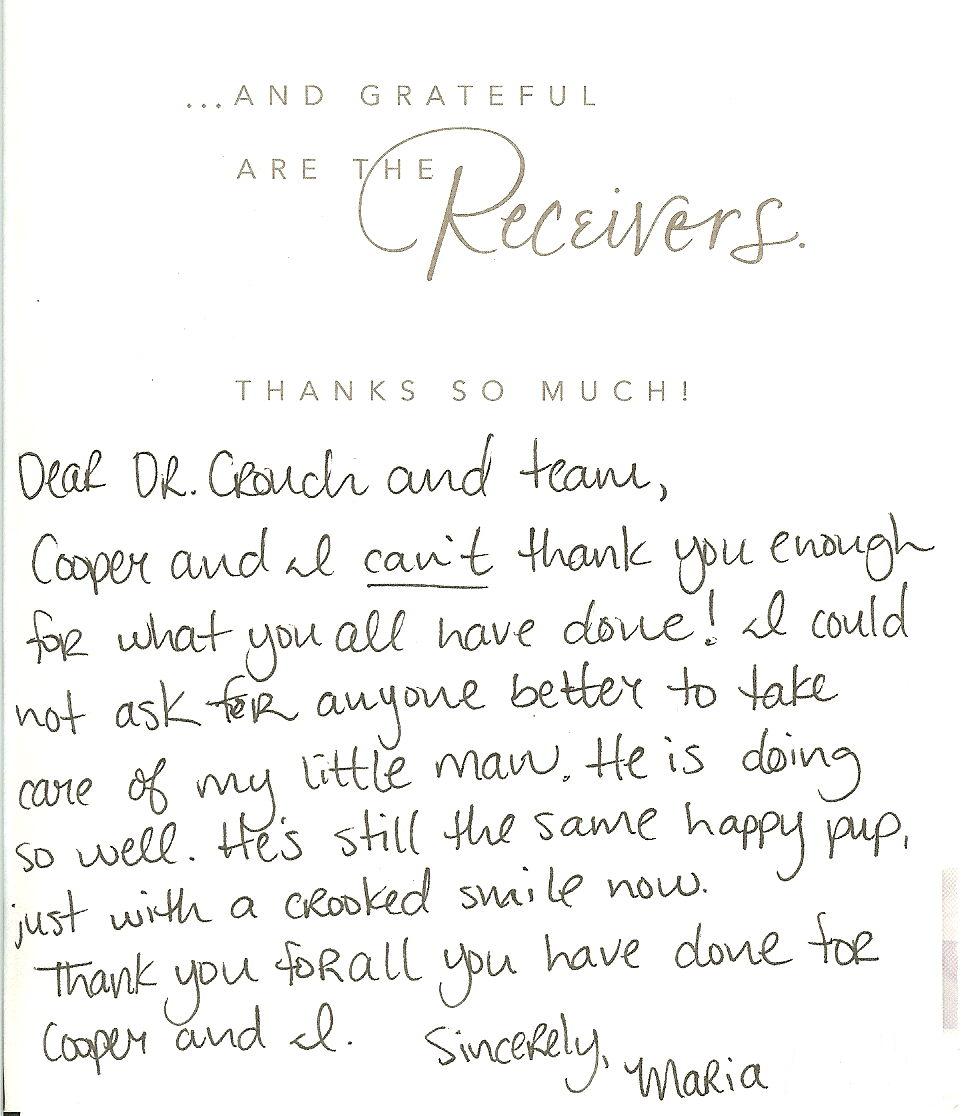 ...AND GRATEFUL
ARE THE Receivers.
THANKS SO MUCH!
Dear DR. Crouch and team,
Cooper and I can't thank you enough
for what you all have done! I could
not ask for anyone better to take
care of my little man. He is doing
so well. He's still the same happy pup,
just with a crooked smile now.
Thank you for all you have done for
Cooper and I. Sincerely,
Maria